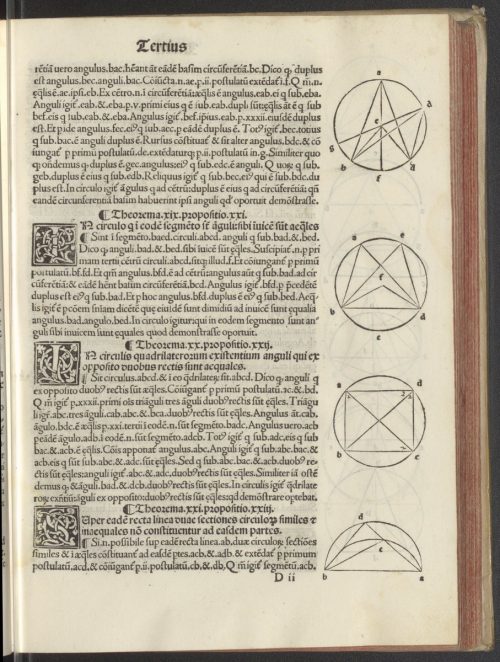 Tertius
rẽtiã uero angulus.bac.hẽant at eãdẽ basim circũferẽtiã.bc. Dico q duplus
est angulus.bec.anguli.bac. Cõiũcta.n.ae.p.ii.postulatũ extẽdat i.f. Q m̃.n.
eqlis ẽ.ae.ipsi.eb. Ex cẽtro.n.i circũferẽtiã:æqlis ẽ angulus.eab.ei q sub.eba.
Anguli igit.eab.&.eba.p.v.primi eius q ẽ sub.eab.dupli sũt:eqlis at ẽ q sub
bef.eis q sub.eab.&.eba. Angulus igit.bef.ipsius.eab.p.xxxii.eiusdẽ duplus
est. Et p ide angulus.fec.ei q sub.eac.p eadẽ duplus ẽ. Tot igit.bec.totius
q sub.bac.ẽ anguli duplus ẽ. Rursus cõstituat & sit alter angulus.bdc.& cõ
iungat p primi postulatũ.de.extẽdaturq p.ii.postulatũ in.g. Similiter quo
q ondemus q duplus ẽ.gec.angulus:ei q sub.edc.ẽ anguli. Q uoꝝ q sub.
geb.duplus ẽ eius q sub.edb. Reliquus igit q sub.bec.ei qui ẽ sub.bdc.du
plus est. In circulo igit ãgulus q ad cẽtrũ:duplus ẽ eius q ad circũferẽtiã: qñ
eandẽ circunferentiã basim habuerint ipsi anguli qd oportuit demõstrasse.
¶ Theorema.xix.propositio.xxi.
N circulo q i eodẽ segmẽto st ãguli:sibi iuicẽ sũt aeqles
¶ Sint i segmẽto.baed.circuli.abcd. anguli q sub.bad.&.bed.
Dico q anguli.bad.&.bed.sibi iuicẽ sũt eqles. Suscipiat.n.p pri
mam tertii cẽtrũ circuli.abcd.sitq illud.f. Et cõiungant p primũ
postulatũ.bf.fd. Et qm̃ angulus.bfd.ẽ ad cẽtrũ:angulus aũt q sub.bad.ad cir
cũferẽtiã:& eãdẽ hẽnt basim circũferẽtiã.bcd. Angulus igit.bfd.p p̃cedẽtẽ
duplus est ei q sub.bad. Et p hoc angulus.bfd.duplus ẽ ei q sub.bed. Aeq
lis igit ẽ p cõem snĩam dicẽtẽ que eiusdẽ sunt dimidiũ ad inuicẽ sunt equalia
angulus.bad.angulo.bed. In circulo igitur:qui in eodem segmento sunt an
guli sibi inuicem sunt equales quod demonstrasse oportuit.
¶ Theorema.xx.propositio.xxij.
N circulis quadrilaterorum existentium anguli qui ex
opposito duobus rectis sunt aequales.
¶ Sit circulus.abcd.& i eo qdrilater sit.abcd. Dico q anguli q
ex opposito duob rectis sũt æqles. Cõiugant p primũ postulatũ.ac.&.bd.
Q m̃ igit p.xxxii.primi oĩs triãguli tres ãguli duob rectis sũt eqles. Triãgu
li igit.abc.tres ãguli.cab.abc.&.bca.duob rectis sũt eqles. Angulus at.cab.
ãgulo.bdc.ẽ æqlis p.xxi.tercii i eodẽ.n.sũt segmẽto.badc. Angulus uero.acb
p eãdẽ ãgulo.adb.i eodẽ.n.sũt segmẽto.adcb. Tot igit q sub.adc.eis q sub
bac.&.acb.ẽ eqlis. Cõis apponat angulus.abc. Anguli igit q sub.abc.bac.&
acb.eis q sũt sub.abc.&.adc.sũt eqles. Sed q sub.abc.bac.&.acb.duob re
ctis sũt eqles:anguli igit.abc.&.adc.duob rectis sũt eqles. Similiter iã ostẽ
demus q &.ãguli.bad.&.dcb.duob rectis sũt eqles. In circulis igit qdrilate
roꝝ exñtiũ:ãguli ex opposito:duob rectis sũt eqles:qd demõstrare optebat.
¶ Theorema.xxi.propositio.xxiij.
Uper eadẽ recta linea duae sectiones circuloꝝ similes &
inaequales nõ constituentur ad easdem partes.
¶ Si.n.possibile sup eadẽ recta linea.ab.duæ circuloꝝ sectiões
similes & i æqles cõstituant ad easdẽ ptes.acb.&.adb.& extẽdat p primum
postulatũ.acd.& cõiũgant p.ii.postulatũ.cb.&.db. Q m̃ igit segmẽtũ.acb.
D ii
a
e
d
g
b
f
d
a
e
f
b
d
c
a
d
b
c
d
c
b
a